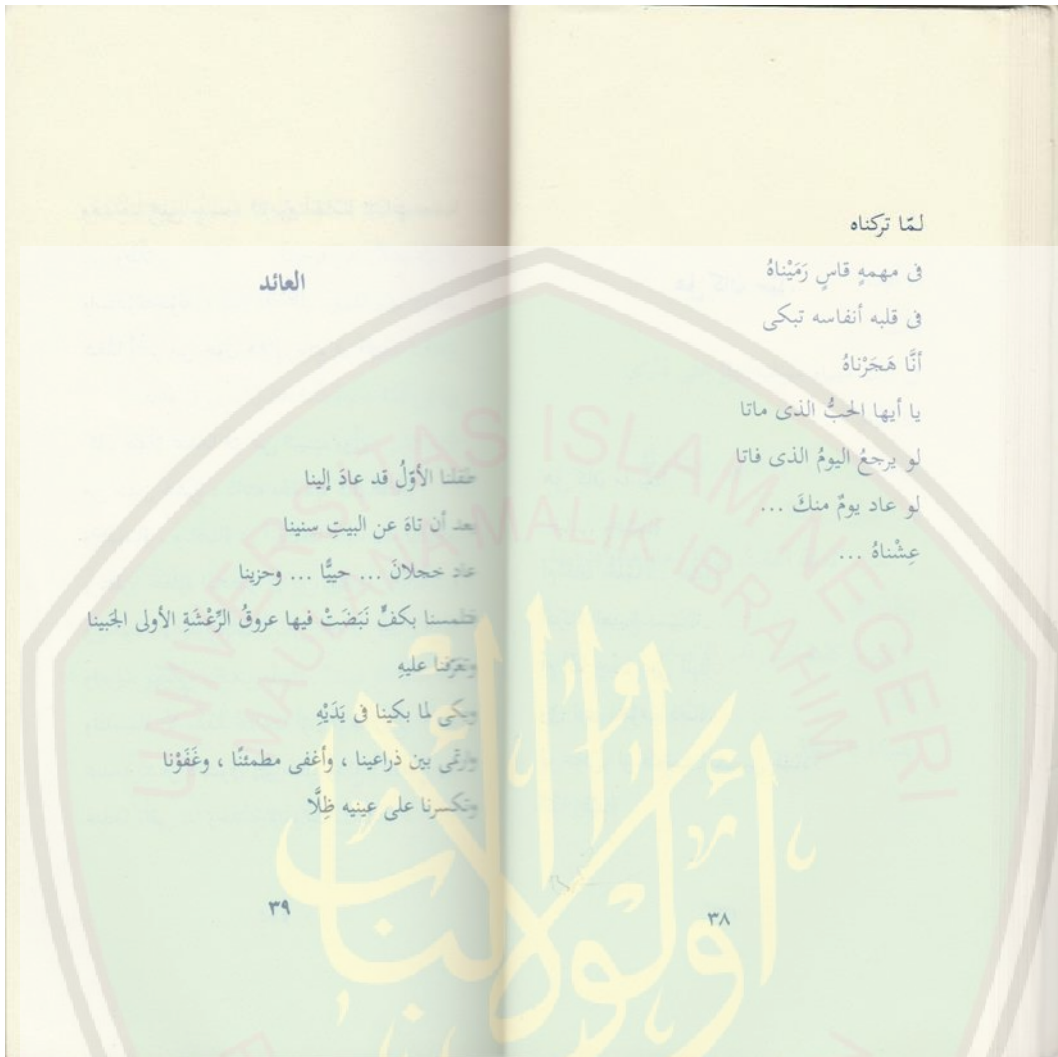 لمّا تركناه
فى مهمهٍ قاسٍ رَمَيْناهُ
فى قلبه أنفاسه تبكى
أنَّا هَجَرْناهُ
يا أيها الحبُّ الذى ماتا
لو يرجعُ اليومُ الذى فاتا
لو عاد يومٌ منكَ ...
عِشْناهُ ...
٣٨
العائد
طفلنا الأوّلُ قد عادَ إلينا
بعد أن تاهَ عن البيتِ سنينا
عاد خجلانَ ... حييًّا ... وحزينا
فلمسنا بكفٍّ نَبَضَتْ فيها عروقُ الرِّعْشَةِ الأولى الجَبينا
وتعرّفنا عليهِ
وبكى لما بكينا فى يَدَيْهِ
وارتمى بين ذراعينا ، وأغفى مطمئنًا ، وغَفَوْنا
وتكسرنا على عينيه ظِلَّا
٣٩
UNIVERSITAS ISLAM NEGERI
MAULANA MALIK IBRAHIM
أولو الألباب